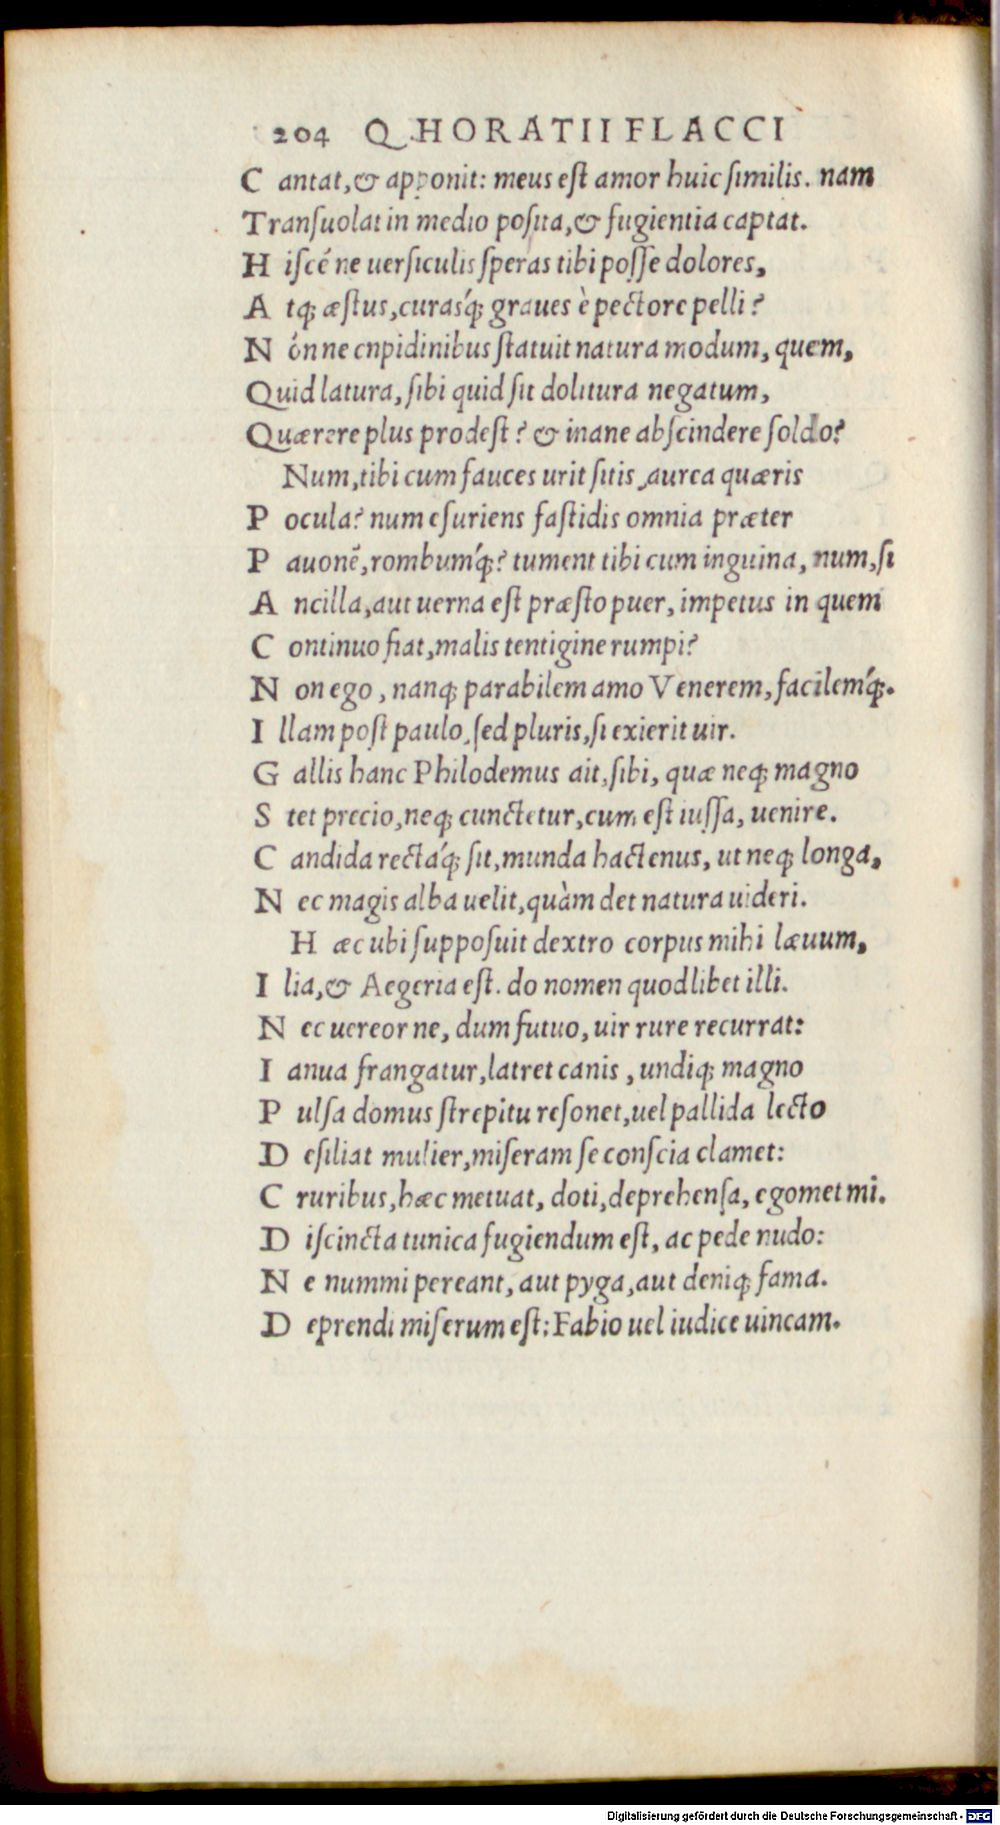 204 Q. HORATII FLACCI
C antat, & apponit: meus est amor huic similis. nam
Transuolat in medio posita, & fugientia captat.
H iscé ne uersiculis speras tibi posse dolores,
A tq; æstus, curasq́; graues è pectore pelli?
N ónne cnpidinibus statuit natura modum, quem,
Quid latura, sibi quid sit dolitura negatum,
Quærere plus prodest? & inane abscindere soldo?
Num, tibi cum fauces urit sitis, aurea quæris
P ocula? num esuriens fastidis omnia præter
P auonẽ, rombumq́;? tument tibi cum inguina, num, si
A ncilla, aut uerna est præsto puer, impetus in quem
C ontinuo fiat, malis tentigine rumpi?
N on ego, nanq; parabilem amo Venerem, facilemq́;.
I llam post paulo, sed pluris, si exierit uir.
G allis hanc Philodemus ait, sibi, quæ neq; magno
S tet precio, neq; cunctetur, cum est iussa, uenire.
C andida rectaq́; sit, munda hactenus, ut neq; longa,
N ec magis alba uelit, quàm det natura uideri.
H æc ubi supposuit dextro corpus mihi læuum,
I lia, & Aegeria est. do nomen quodlibet illi.
N ec uereor ne, dum futuo, uir rure recurrat:
I anua frangatur, latret canis, undiq; magno
P ulsa domus strepitu resonet, uel pallida lecto
D esiliat mulier, miseram se conscia clamet:
C ruribus, hæc metuat, doti, deprehensa, egomet mi.
D iscincta tunica fugiendum est, ac pede nudo:
N e nummi pereant, aut pyga, aut deniq; fama.
D eprendi miserum est: Fabio uel iudice uincam.
Digitalisierung gefördert durch die Deutsche Forschungsgemeinschaft - DFG